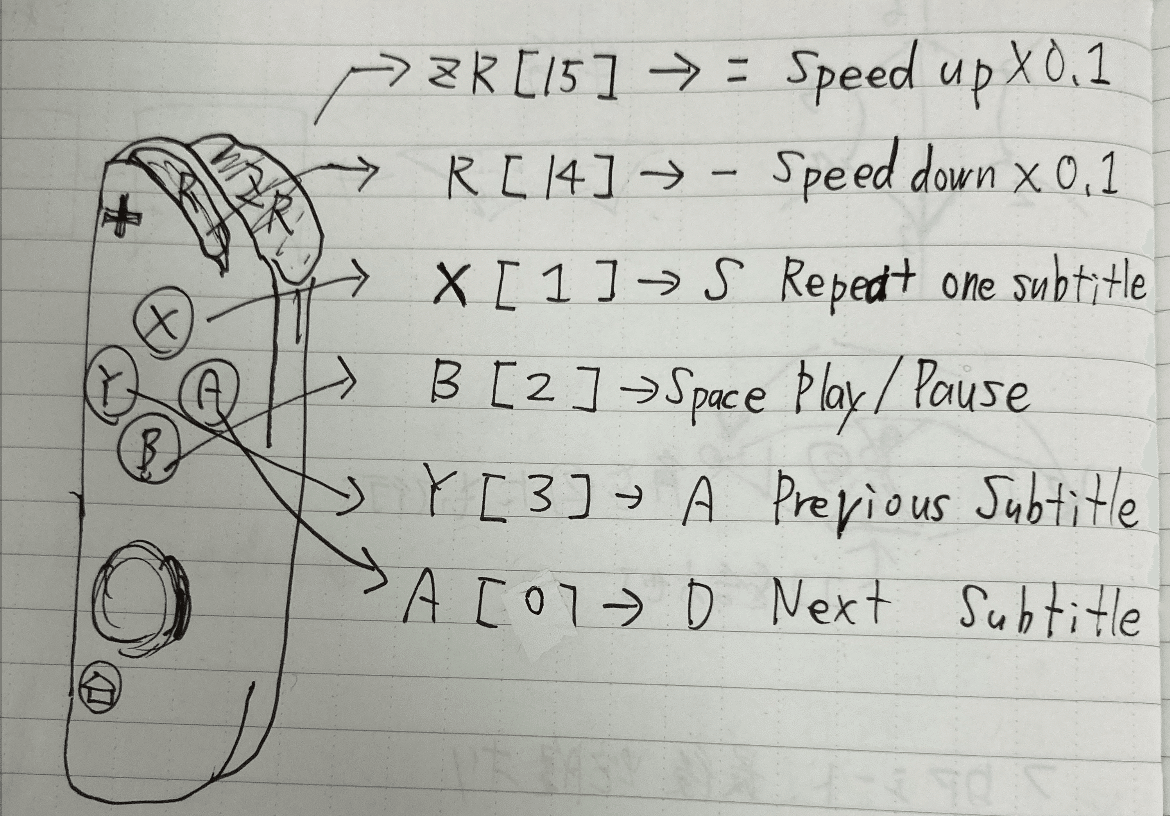 ZR [15] → = Speed up X0.1
R [14] → - Speed down x0.1
X [1] → S Repeat one subtitle
B [2] → Space Play/Pause
Y [3] → A Previous Subtitle
A [0] → D Next Subtitle
R
ZR
+
X
Y
A
B